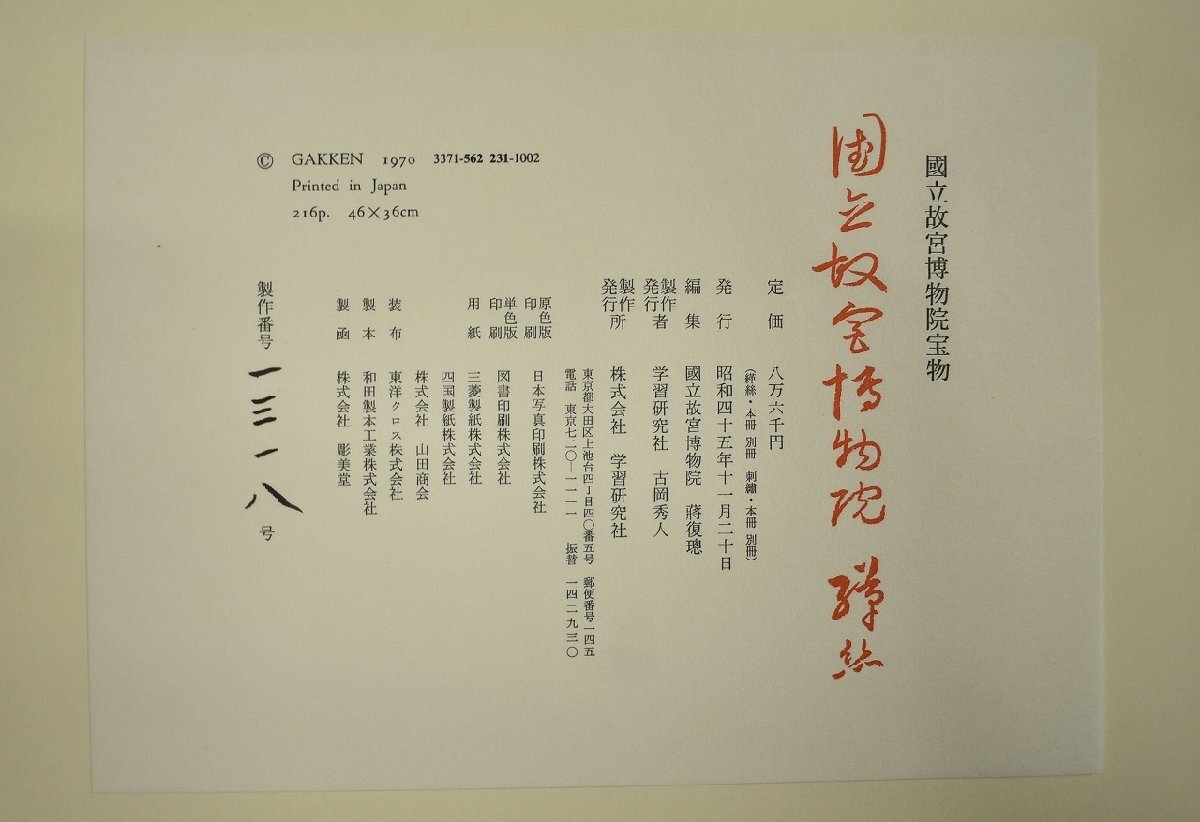 國立故宮博物院宝物
国立故宮博物院 緙絲
定価 八万六千円
(緙絲・本冊 別冊 刺繡・本冊 別冊)
発行 昭和四十五年十一月二十日
編集 國立故宮博物院 蔣復璁
製作者
発行者 学習研究社 古岡秀人
製作所
発行所 株式会社 学習研究社
東京都大田区上池台四丁目四〇番五号 郵便番号一四五
電話 東京七二〇―一一一一 振替 一四二九三〇
原色版
印刷 日本写真印刷株式会社
単色版
印刷 図書印刷株式会社
用紙 三菱製紙株式会社
四国製紙株式会社
株式会社 山田商会
装布 東洋クロス株式会社
製本 和田製本工業株式会社
製函 株式会社 彫美堂
製作番号 一三一八 号
© GAKKEN 1970 3371-562 231-1002
Printed in Japan
216p. 46×36cm